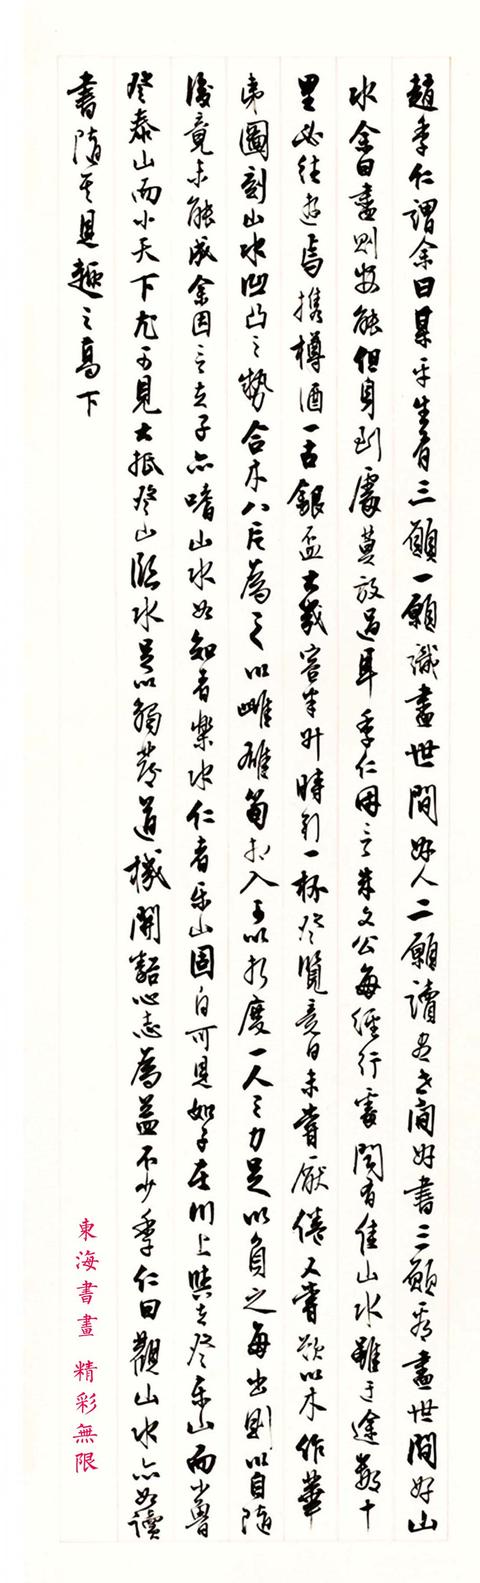 趙季仁謂余曰某平生有三願一願識盡世間好人二願讀盡世間好書三願看盡世間好山
水余曰盡則安能但身到處莫放過耳季仁因言朱文公每經行處聞有佳山水雖迂途數十
里必往遊焉携樽酒一古銀盃大幾容半升時引一杯登覽竟日未嘗厭倦又嘗欲以木作華
夷圖刻山水凹凸之勢合木八片為之以雌雄筍相入可以折度一人之力足以負之每出則以自隨
後竟未能成余因言夫子亦嗜山水如知者樂水仁者樂山固自可見如子在川上與夫登東山而小魯
登泰山而小天下尤可見大抵登山臨水足以觸發道機開豁心志為益不少季仁曰觀山水亦如讀
書隨其見趣之高下
東海書畫 精彩無限